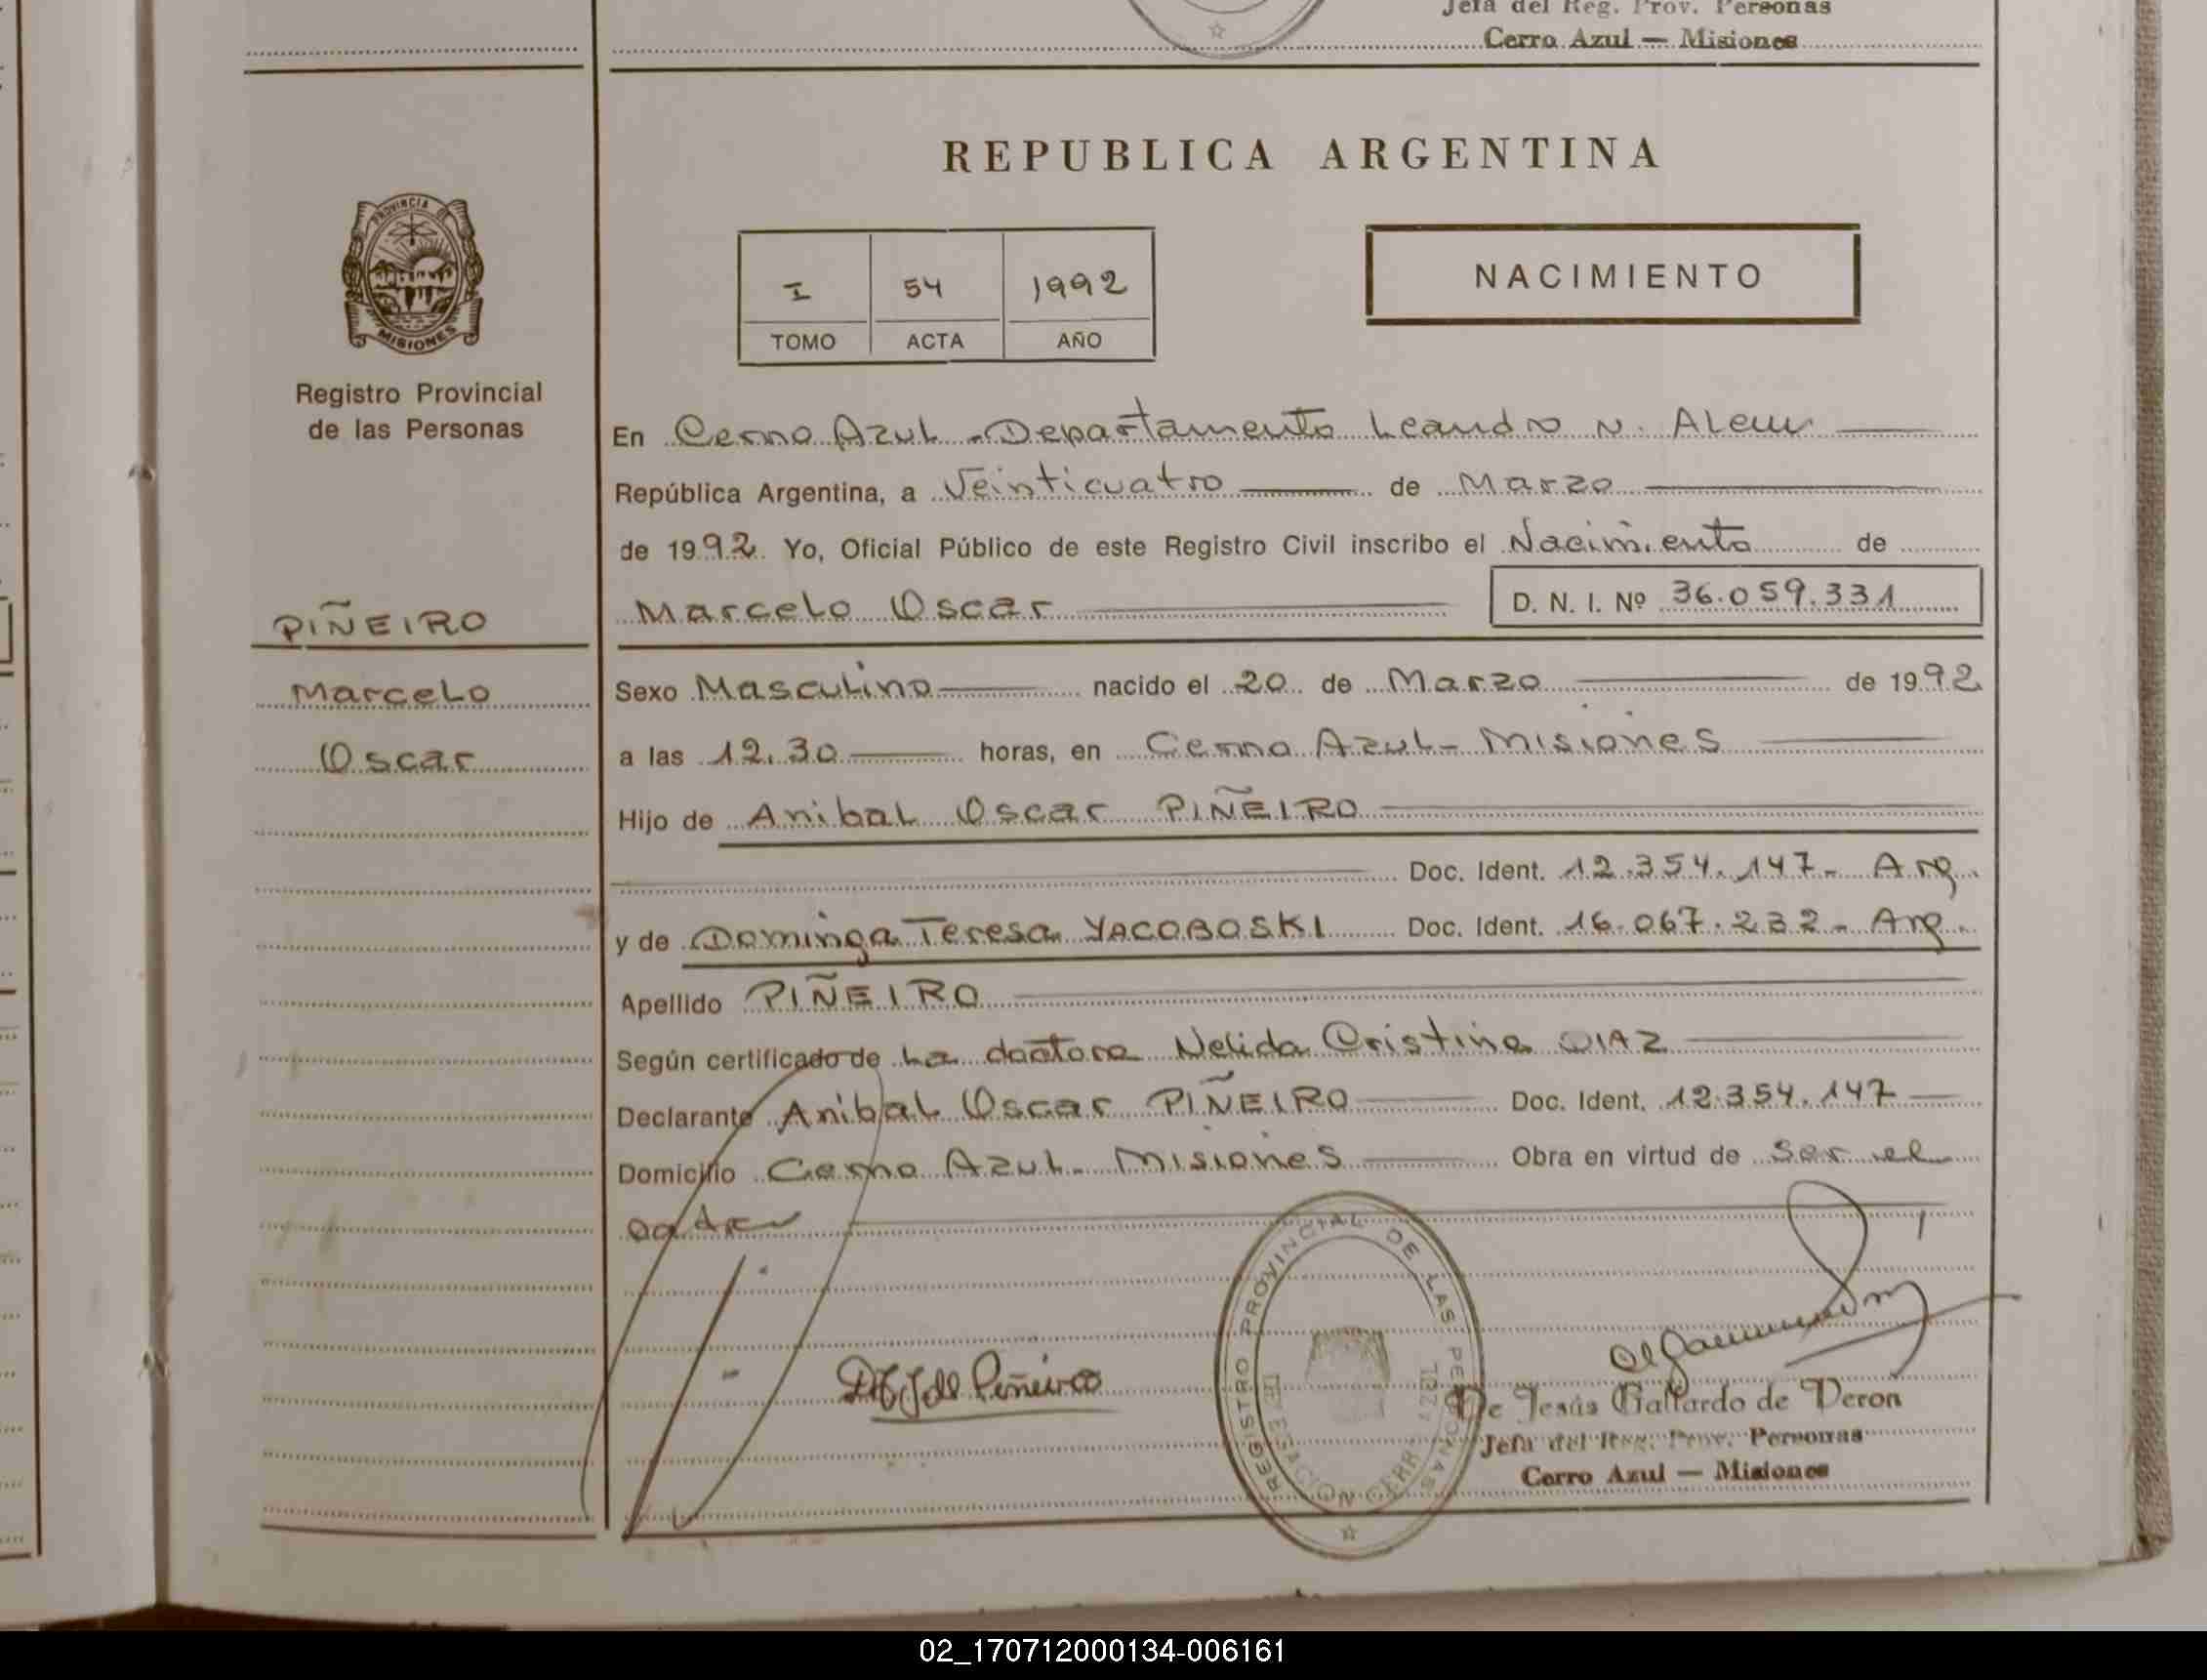 Jefa del Reg. Prov. Personas
Cerro Azul — Misiones
REPUBLICA ARGENTINA
PROVINCIA DE
MISIONES
I 54 1992
TOMO ACTA AÑO
NACIMIENTO
Registro Provincial
de las Personas
PIÑEIRO
Marcelo
Oscar
En Cerro Azul - Departamento Leandro N. Alem
República Argentina, a Veinticuatro de Marzo
de 1992. Yo, Oficial Público de este Registro Civil inscribo el Nacimiento de
Marcelo Oscar D. N. I. Nº 36.059.331
Sexo Masculino nacido el 20 de Marzo de 1992
a las 12.30 horas, en Cerro Azul - Misiones
Hijo de Anibal Oscar PIÑEIRO
Doc. Ident. 12.354.147 - Arg.
y de Dominga Teresa YACOBOSKI Doc. Ident. 16.067.232 - Arg.
Apellido PIÑEIRO
Según certificado de La doctora Nelida Cristina DIAZ
Declarante Anibal Oscar PIÑEIRO Doc. Ident. 12.354.147
Domicilio Cerro Azul - Misiones Obra en virtud de ser el
padre
REGISTRO PROVINCIAL DE LAS PERSONAS
de Piñeiro
De Jesús Gallardo de Veron
Jefa del Reg. Prov. Personas
Cerro Azul — Misiones
02_170712000134-006161